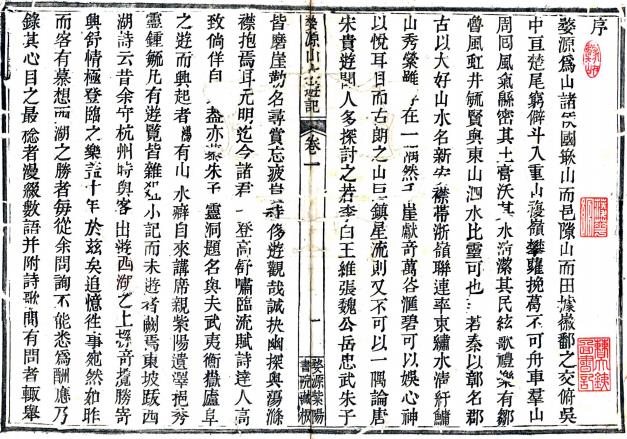 序
婺源爲山諸矦國嵚山而邑隙山而田據撤鄱之交俯吳
中亘楚尾窮僻斗入重山複嶺攀蘿挽葛不可舟車羣山
周囘風氣緜密其土膏沃其水淸潔其民絃歌禮樂有鄒
魯風虹井毓賢與東山泗水比靈可也 若秦以鄣名郡
古以大好山水名新安襟帶浙嶺聯連率東繡水淸紆鱅
山秀縈雖 在一隅然 崖獻奇萬谷滙碧可以娛心神
以悅耳目而古朗之山巨鎮星流則又不可以一隅論唐
宋貴遊閒人多探討之若李白王維張魏公岳忠武朱子
婺源山水遊記
卷一
一
婺源紫陽
書院藏板
皆磨崖勒名尋賞忘疲豈 侈遊觀哉誠抉幽探奧蕩滌
襟抱焉耳元明迄今諸君 登高舒嘯臨流賦詩達人高
致倘佯自 盡亦 朱子 靈洞題名與夫武夷衡嶽廬阜
之遊而興起者 有山水癖自來講席親紫陽遺澤挹秀
靈鍾毓凡有遊覽皆雜 小記而未遊者闕焉東坡跋西
湖詩云昔余守杭州時與客出遊西湖之上探奇攬勝寄
興舒情極登臨之樂蓋十年於玆矣追憶徃事宛然如昨
而客有慕想西湖之勝者每從余問詢不能悉爲酬應乃
錄其心目之最 者漫綴數語并附詩歌間有問者輒舉